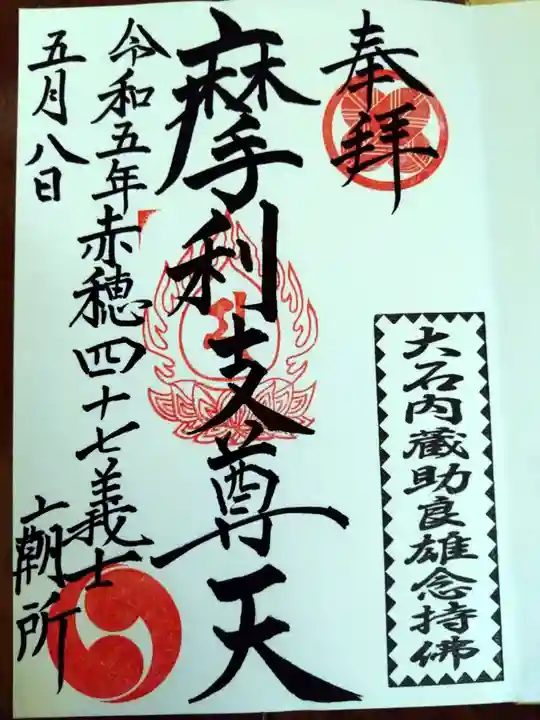 奉拝
大石内蔵助良雄念持佛
摩利支尊天
令和五年赤穂四十七義士
五月八日
廟所